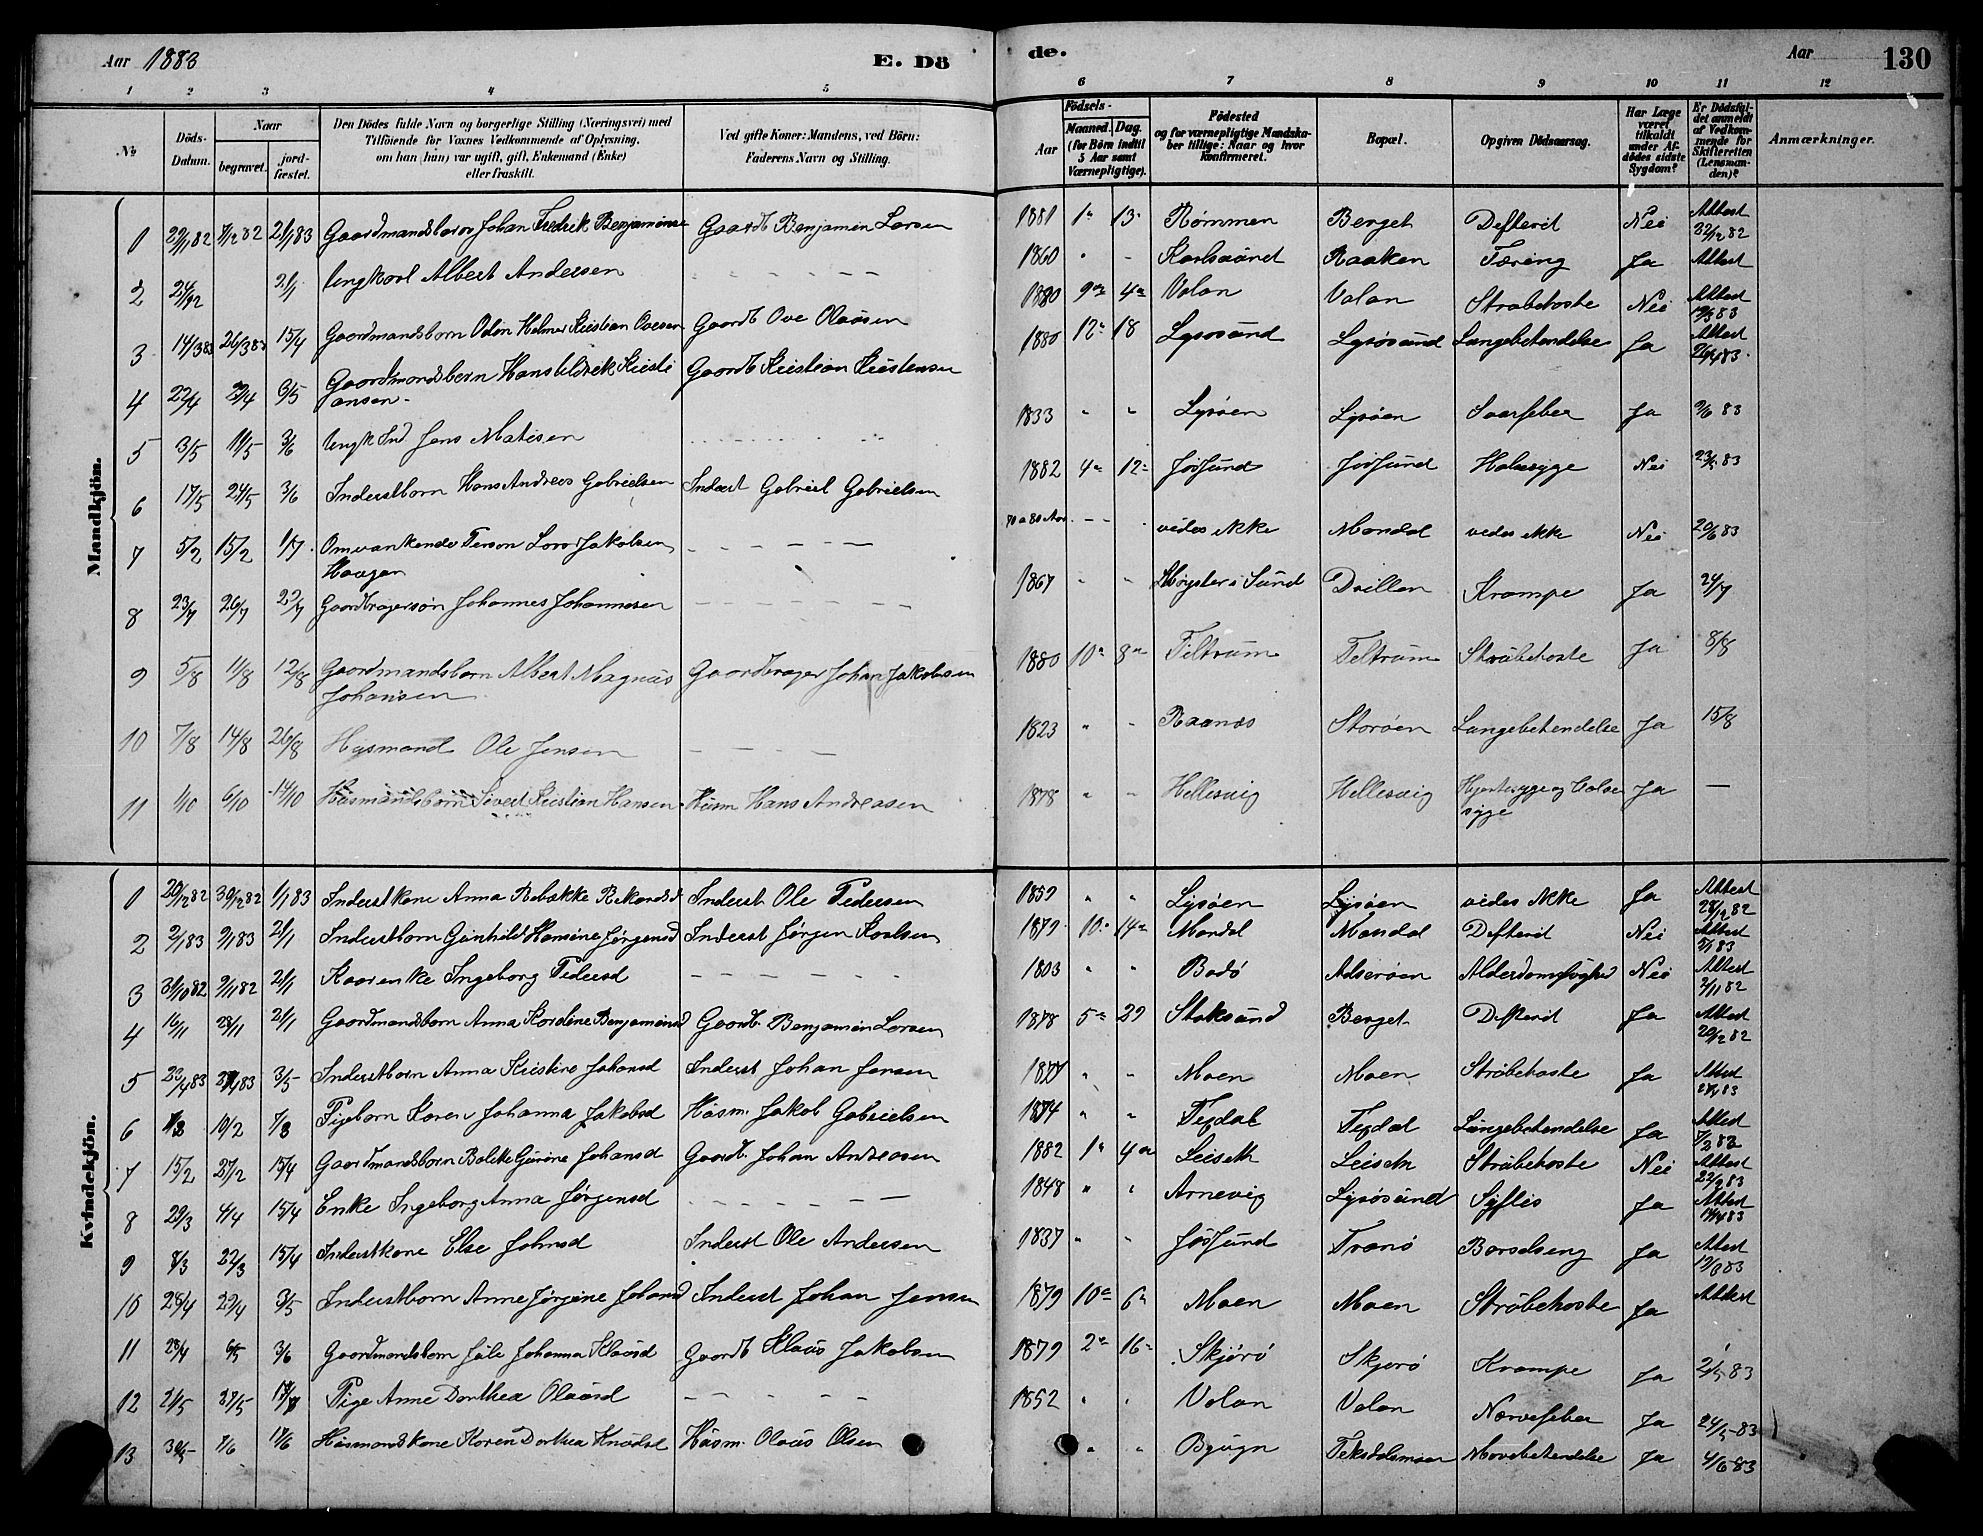 Aar 1883
E. Dö
de.
Aar
130
1 2 3 4 5 6 7 8 9 10 11 12
№
Döds-Datum.
Naar
begravet.
jord-fæstet.
Den Dödes fulde Navn og borgerlige Stilling (Næringsvei) med
Tilföiende for Voxnes Vedkommende af Oplysning,
om han (hun) var ugift, gift, Enkemand (Enke)
eller fraskilt.
Ved gifte Koner: Mandens, ved Börn:
Faderens Navn og Stilling.
Födsels-
Aar
Maaned. Dag.
(for Börn indtil
5 Aar samt
Værnepligtige).
Födested
og for værnepligtige Mandska-
ber tillige: Naar og hvor
konfirmeret.
Bopæl.
Opgiven Dödsaarsag.
Har Læge
været
tilkaldt
under Af-
dödes sidste
Sygdom?
Er Dödsfal-
det anmeldt
af Vedkom-
mende for
Skifteretten
(Lensman-
den)?
Anmærkninger.
Mandkjön.
1 7/12 82 21/1 83 Gaardmandsbarn Johan Fredrik Benjaminsen Gaardb Benjamin Larsen 1881 1 13 Rømmen Berget Defterit Nei Attest
2 21/1 Ungkarl Albert Andersen 1860 Karlsaünd Raaken Tæring Ja Attest
3 14/3 83 26/3 83 15/4 Gaardmandsbarn Odin Helmer Kristian Ovesen Gaardb Ove Olaüsen 1880 9 4 Valan Valan Strubehoste Nei Attest
4 22/4 6/5 Gaardmandsbarn Hans Kristi
ansen Gaardb Kristian Kristensen 1880 12 18 Lysøsund Lysøsund Lungebetendelse Ja Attest
5 3/5 11/5 3/6 Ungk Ind. Jens Matisen 1833 Lysøen Lysøen Saarfeber Ja 9/6 83
6 17/5 24/5 3/6 Inderstbarn Hans Andreas Gabrielsen Inderst Gabriel Gabrielsen 1882 4 12 Jøssund Jøssund Halssyge Nei 23/5 83
7 5/2 15/2 1/7 Omvankende Person Lars Jakobsen
Haugen 70 a 80 Aar vides ikke Mandal vides ikke Nei 20/6 83
8 23/7 26/7 29/7 Gaardbrugersøn Johannes Johannesen 1867 i Sund Drillen Krampe Ja 24/7
9 5/8 11/8 12/8 Gaardmandsbarn Albert Magnüs
Johansen Gaardbruger Johan Jakobsen 1880 10 8 Teltrüm Teltrüm Strübehoste Ja 8/8
10 7/8 14/8 26/8 Husmand Ole Jensen 1823 Raanes Storøen Lungebetendelse Ja 15/8
11 1/10 6/10 14/10 Husmandsbarn Sivert Kristian Hansen Husm Hans Andreasen 1878 Hellesvig Hellesvig Hjertesyge og Hals
syge Ja —
Kvindekjön.
1 20/12 82 30/12 82 1/1 83 Inderstkone Anna Rebække Rikardsd Inderst Ole Pedersen 1859 Lysøen Lysøen vides ikke Ja Attest
28/12 82
2 2/1 83 9/1 83 21/1 Inderstbarn Günhild Hansine Jørgensd Inderst Jørgen Karlsen 1879 10 14 Mandal Mandal Defterit Nei Attest
3 31/10 82 9/11 82 21/1 Kaarenke Ingeborg Pedersd 1803 Bodö Alderdomssvaghed Nei Attest
2/11 82
4 16/11 28/11 21/1 Gaardmandsbarn Anna Kordine Benjaminsd Gaardb. Benjamin Larsen 1878 5 29 Stoksünd Berget Defterit Ja Attest
20/12 82
5 23/4 83 3/5 Inderstbarn Anna Kristine Johansd Inderst Johan Jensen Moen Moen Strübehoste Ja Attest
6 10/2 Pigebarn Karen Johanna Jakobsd Hüsm. Jakob Gabrielsen 1874 Teqdal Teqdal Lüngebetendelse Ja Attest
7 15/2 27/2 15/4 Gaardmandsbarn Gürine Johansd Gaardb. Johan Andreasen 1882 1 4 Leiseth Leiseth Strübehoste Nei Attest
8 29/3 4/4 15/4 Enke Ingeborg Anna Jørgensd 1848 Arnevig Lysösünd Syfilis Ja Attest
9 8/3 22/3 15/4 Inderstkone Else Johnsd Inderst Ole Andersen 1837 Jössund Tranö Barselseng Ja Attest
10 28/4 29/4 3/5 Inderstbarn Anne Jørgine Johansd Inderst Johan Jensen 1879 10 6 Moen Moen Strübehoste Ja Attest
11 28/4 6/5 3/6 Gaardmandsbarn Johanna Klausd Gaardb Klaus Jakobsen 1879 2 16 Skjörö Skjørö Krampe Ja 2/5 83
12 21/5 Pige Anne Dorthea Olaüsd 1852 Valan Valan Nervefeber Ja 24/5 83
13 30/5 7/6 17/6 Hüsmandskone Karen Dorthea Knüdsd Hüsm. Olaüs Olsen Bjügn Teksdalsmoen Mavebetendelse Ja 4/6 83